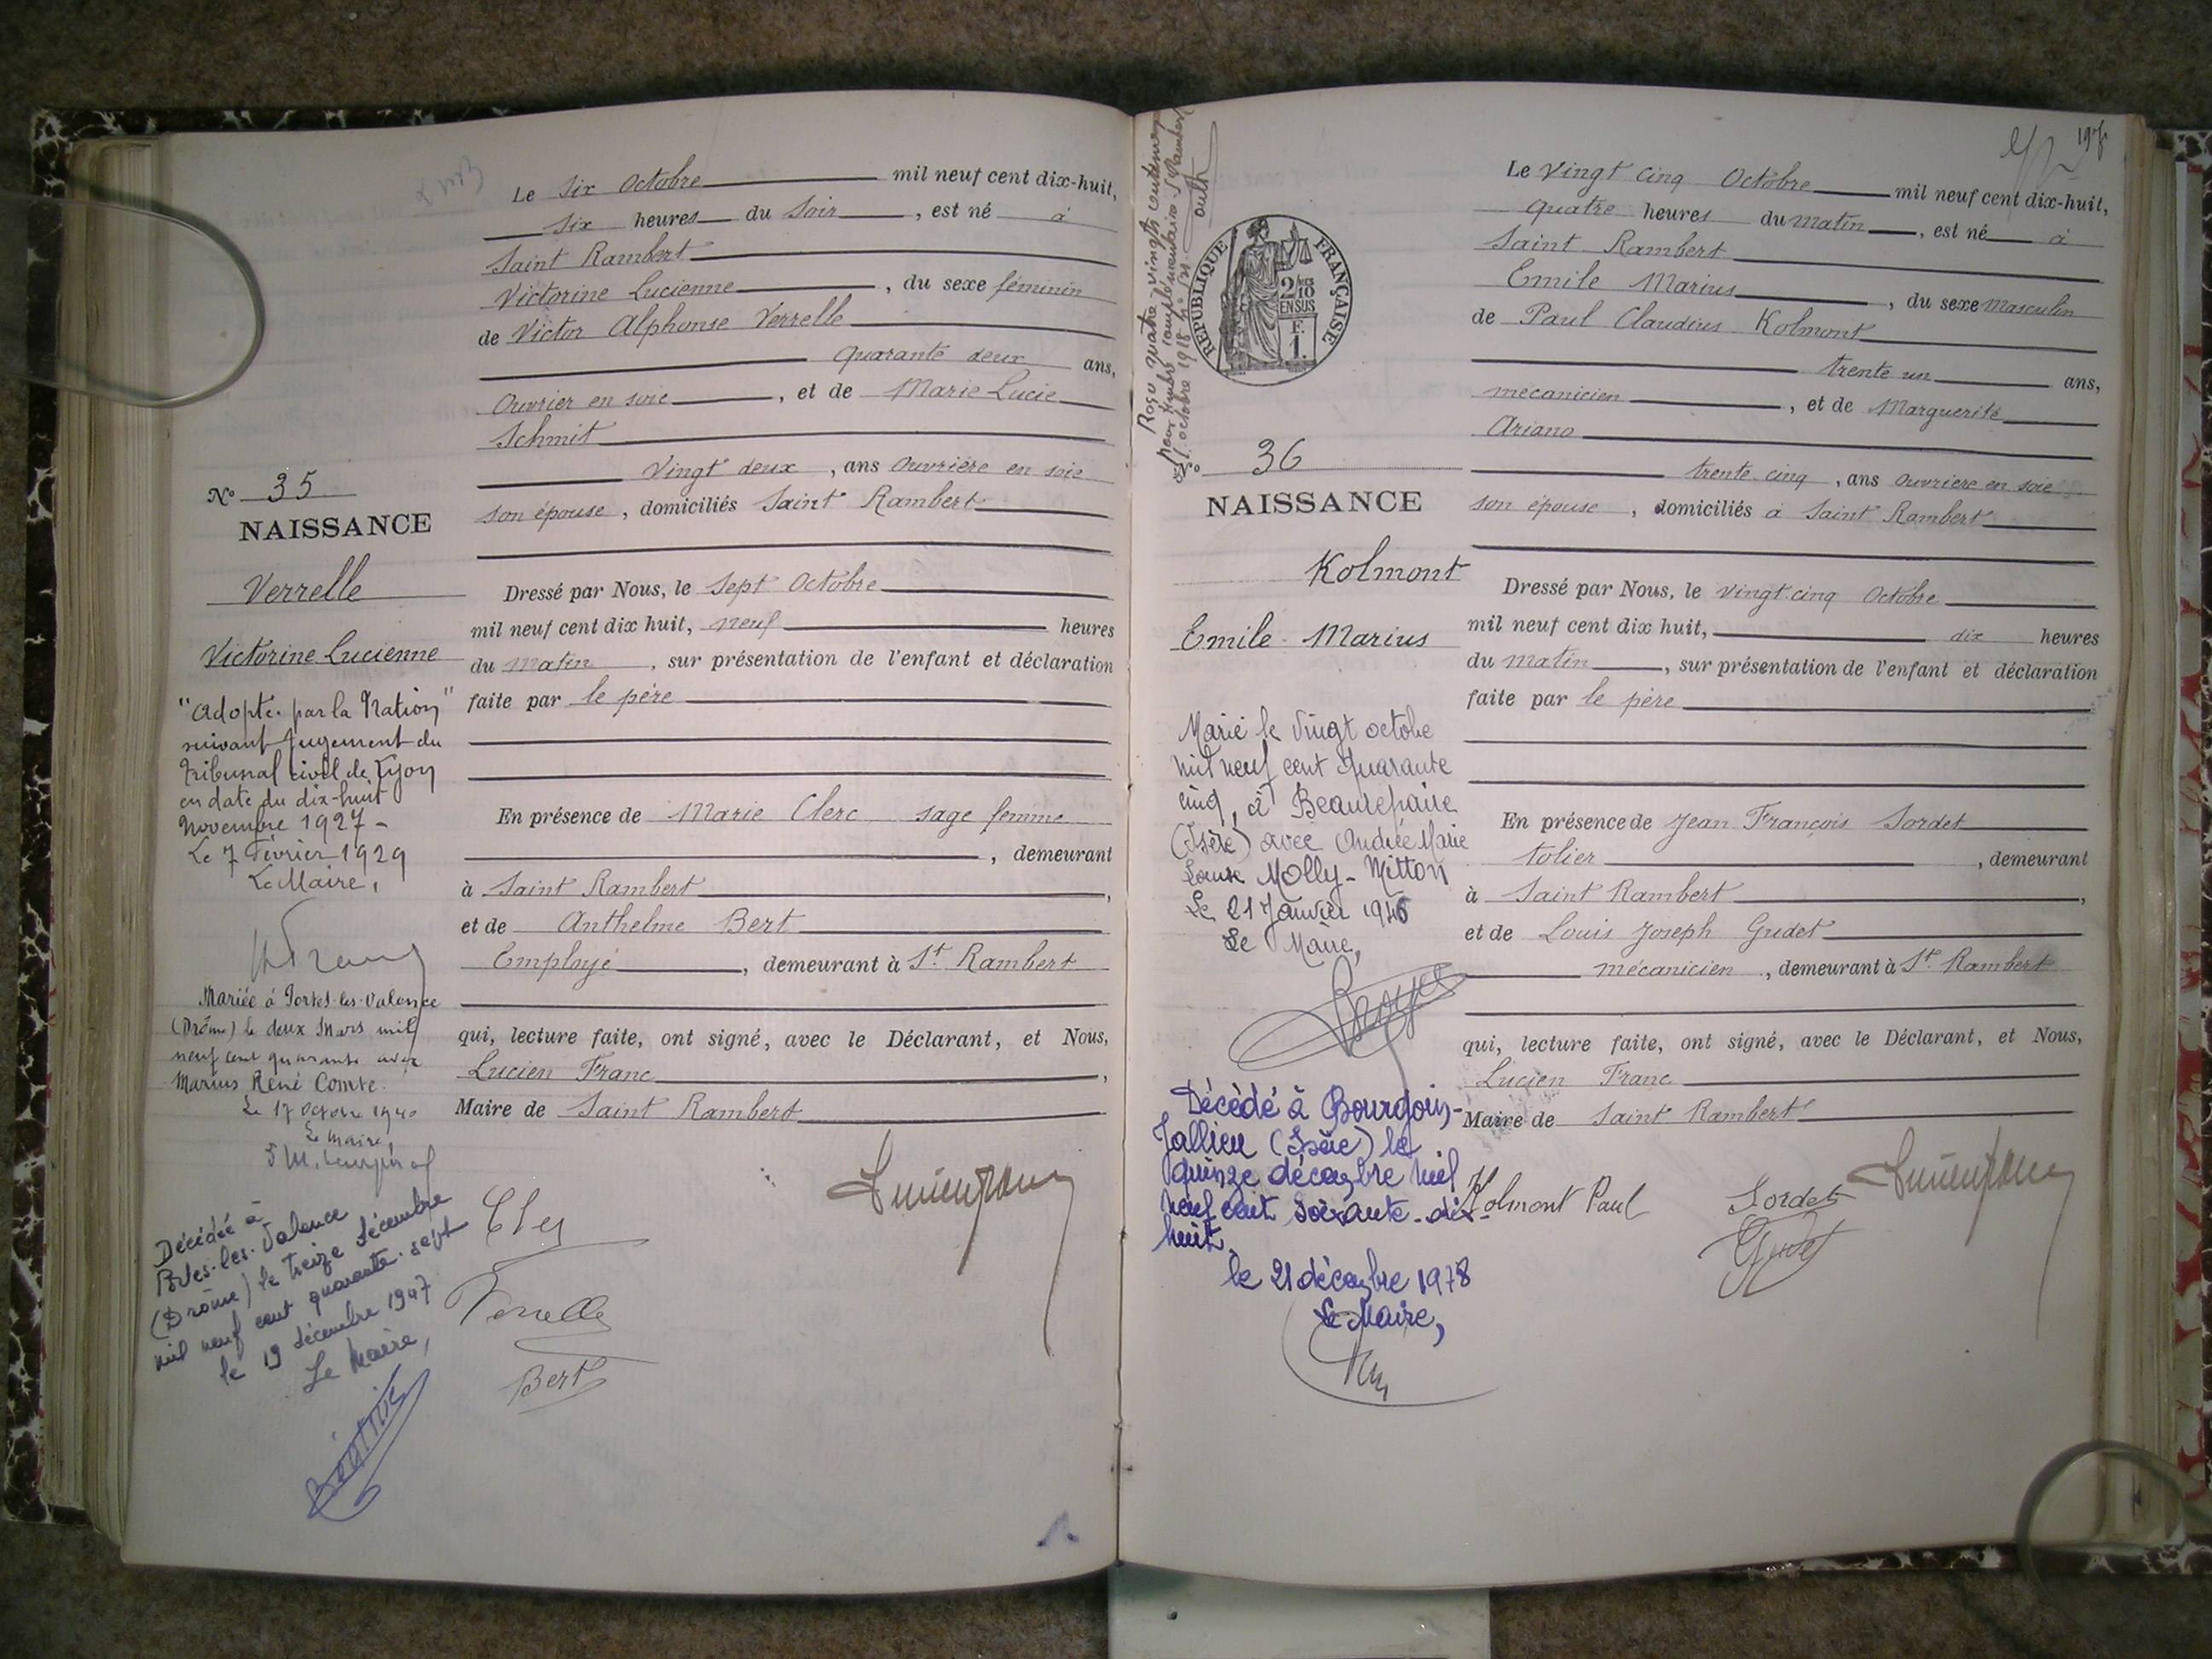 Le Six Octobre mil neuf cent dix-huit,
six heures du Soir, est né à
Saint Rambert
Victorine Lucienne, du sexe féminin
de Victor Alphonse Verrelle
quarante deux ans,
Ouvrier en soie, et de Marie Lucie
Schmit
Vingt deux, ans Ouvrière en soie
son épouse, domiciliés Saint Rambert
N° 35
NAISSANCE
Verrelle
Victorine Lucienne
"Adopté par la Nation"
suivant Jugement du
Tribunal civil de Lyon
en date du dix-huit
Novembre 1927 -
Le 7 Février 1929
Le Maire,
Mariée à Portes-les-Valence
(Drôme) le deux Mars mil
neuf cent quarante avec
Marius René Comte.
Le 17 Octobre 1940
Le Maire,
Décédée à
Portes-les-Valence
(Drôme) le treize décembre
mil neuf cent quarante-sept
le 19 décembre 1947
Le Maire,
Dressé par Nous, le Sept Octobre
mil neuf cent dix huit, neuf heures
du matin, sur présentation de l'enfant et déclaration
faite par le père
En présence de Marie Clerc sage femme
, demeurant
à Saint Rambert,
et de Anthelme Bert
Employé, demeurant à St. Rambert
qui, lecture faite, ont signé, avec le Déclarant, et Nous,
Lucien Franc,
Maire de Saint Rambert
Verrelle
Bert
Lucien Franc
197
REPUBLIQUE FRANÇAISE
2/10
EN SUS
F.
1.
Le Vingt cinq Octobre mil neuf cent dix-huit,
quatre heures du matin, est né à
Saint Rambert
Emile Marius, du sexe masculin
de Paul Claudius Kolmont
trente un ans,
mécanicien, et de Marguerite
Ariano
trente cinq, ans Ouvrière en soie
son épouse, domiciliés à Saint Rambert
N° 36
NAISSANCE
Kolmont
Emile Marius
Marié le Vingt octobre
mil neuf cent Quarante
cinq, à Beaurepaire
(Isère) avec Andrée Marie
Louise Molly-Mitton
Le 21 Janvier 1946
Le Maire,
Décédé à Bourgoin-
Jallieu (Isère) le
quinze décembre mil
neuf cent soixante-dix-
huit.
le 21 décembre 1978
Le Maire,
Dressé par Nous, le vingt cinq Octobre
mil neuf cent dix huit, dix heures
du matin, sur présentation de l'enfant et déclaration
faite par le père
En présence de Jean François Sordet
tolier, demeurant
à Saint Rambert,
et de Louis Joseph Gudet
mécanicien, demeurant à St. Rambert
qui, lecture faite, ont signé, avec le Déclarant, et Nous,
Lucien Franc
Maire de Saint Rambert
Kolmont Paul
Sordet
Gudet
Lucien Franc